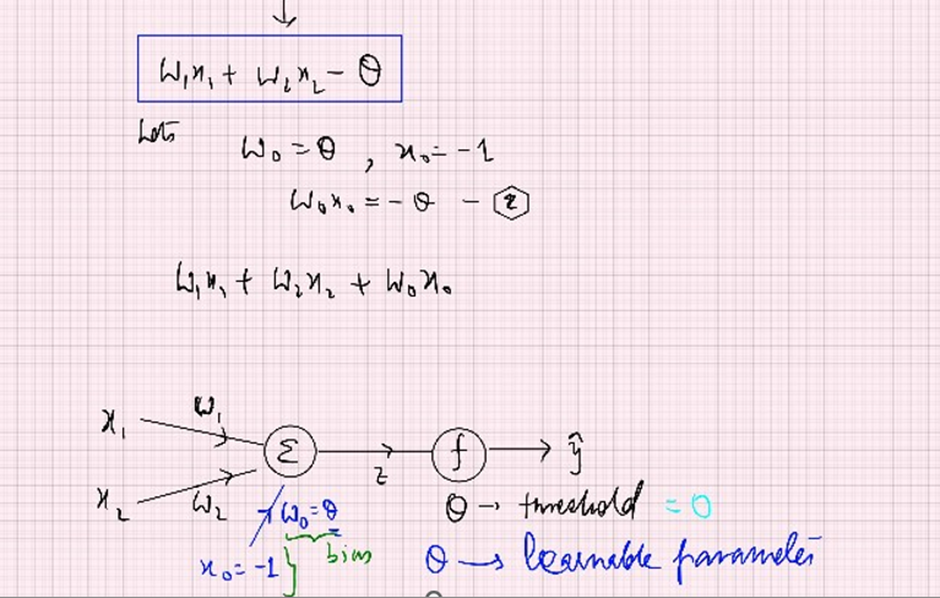 ↓
W₁x₁ + W₂x₂ - θ
Lets
W₀ = θ , x₀ = -1
W₀x₀ = - θ - ②
W₁x₁ + W₂x₂ + W₀x₀
x₁ W₁ Σ z f ŷ
x₂ W₂
W₀ = θ
θ → threshold = 0
x₀ = -1 } bias
θ → learnable parameter